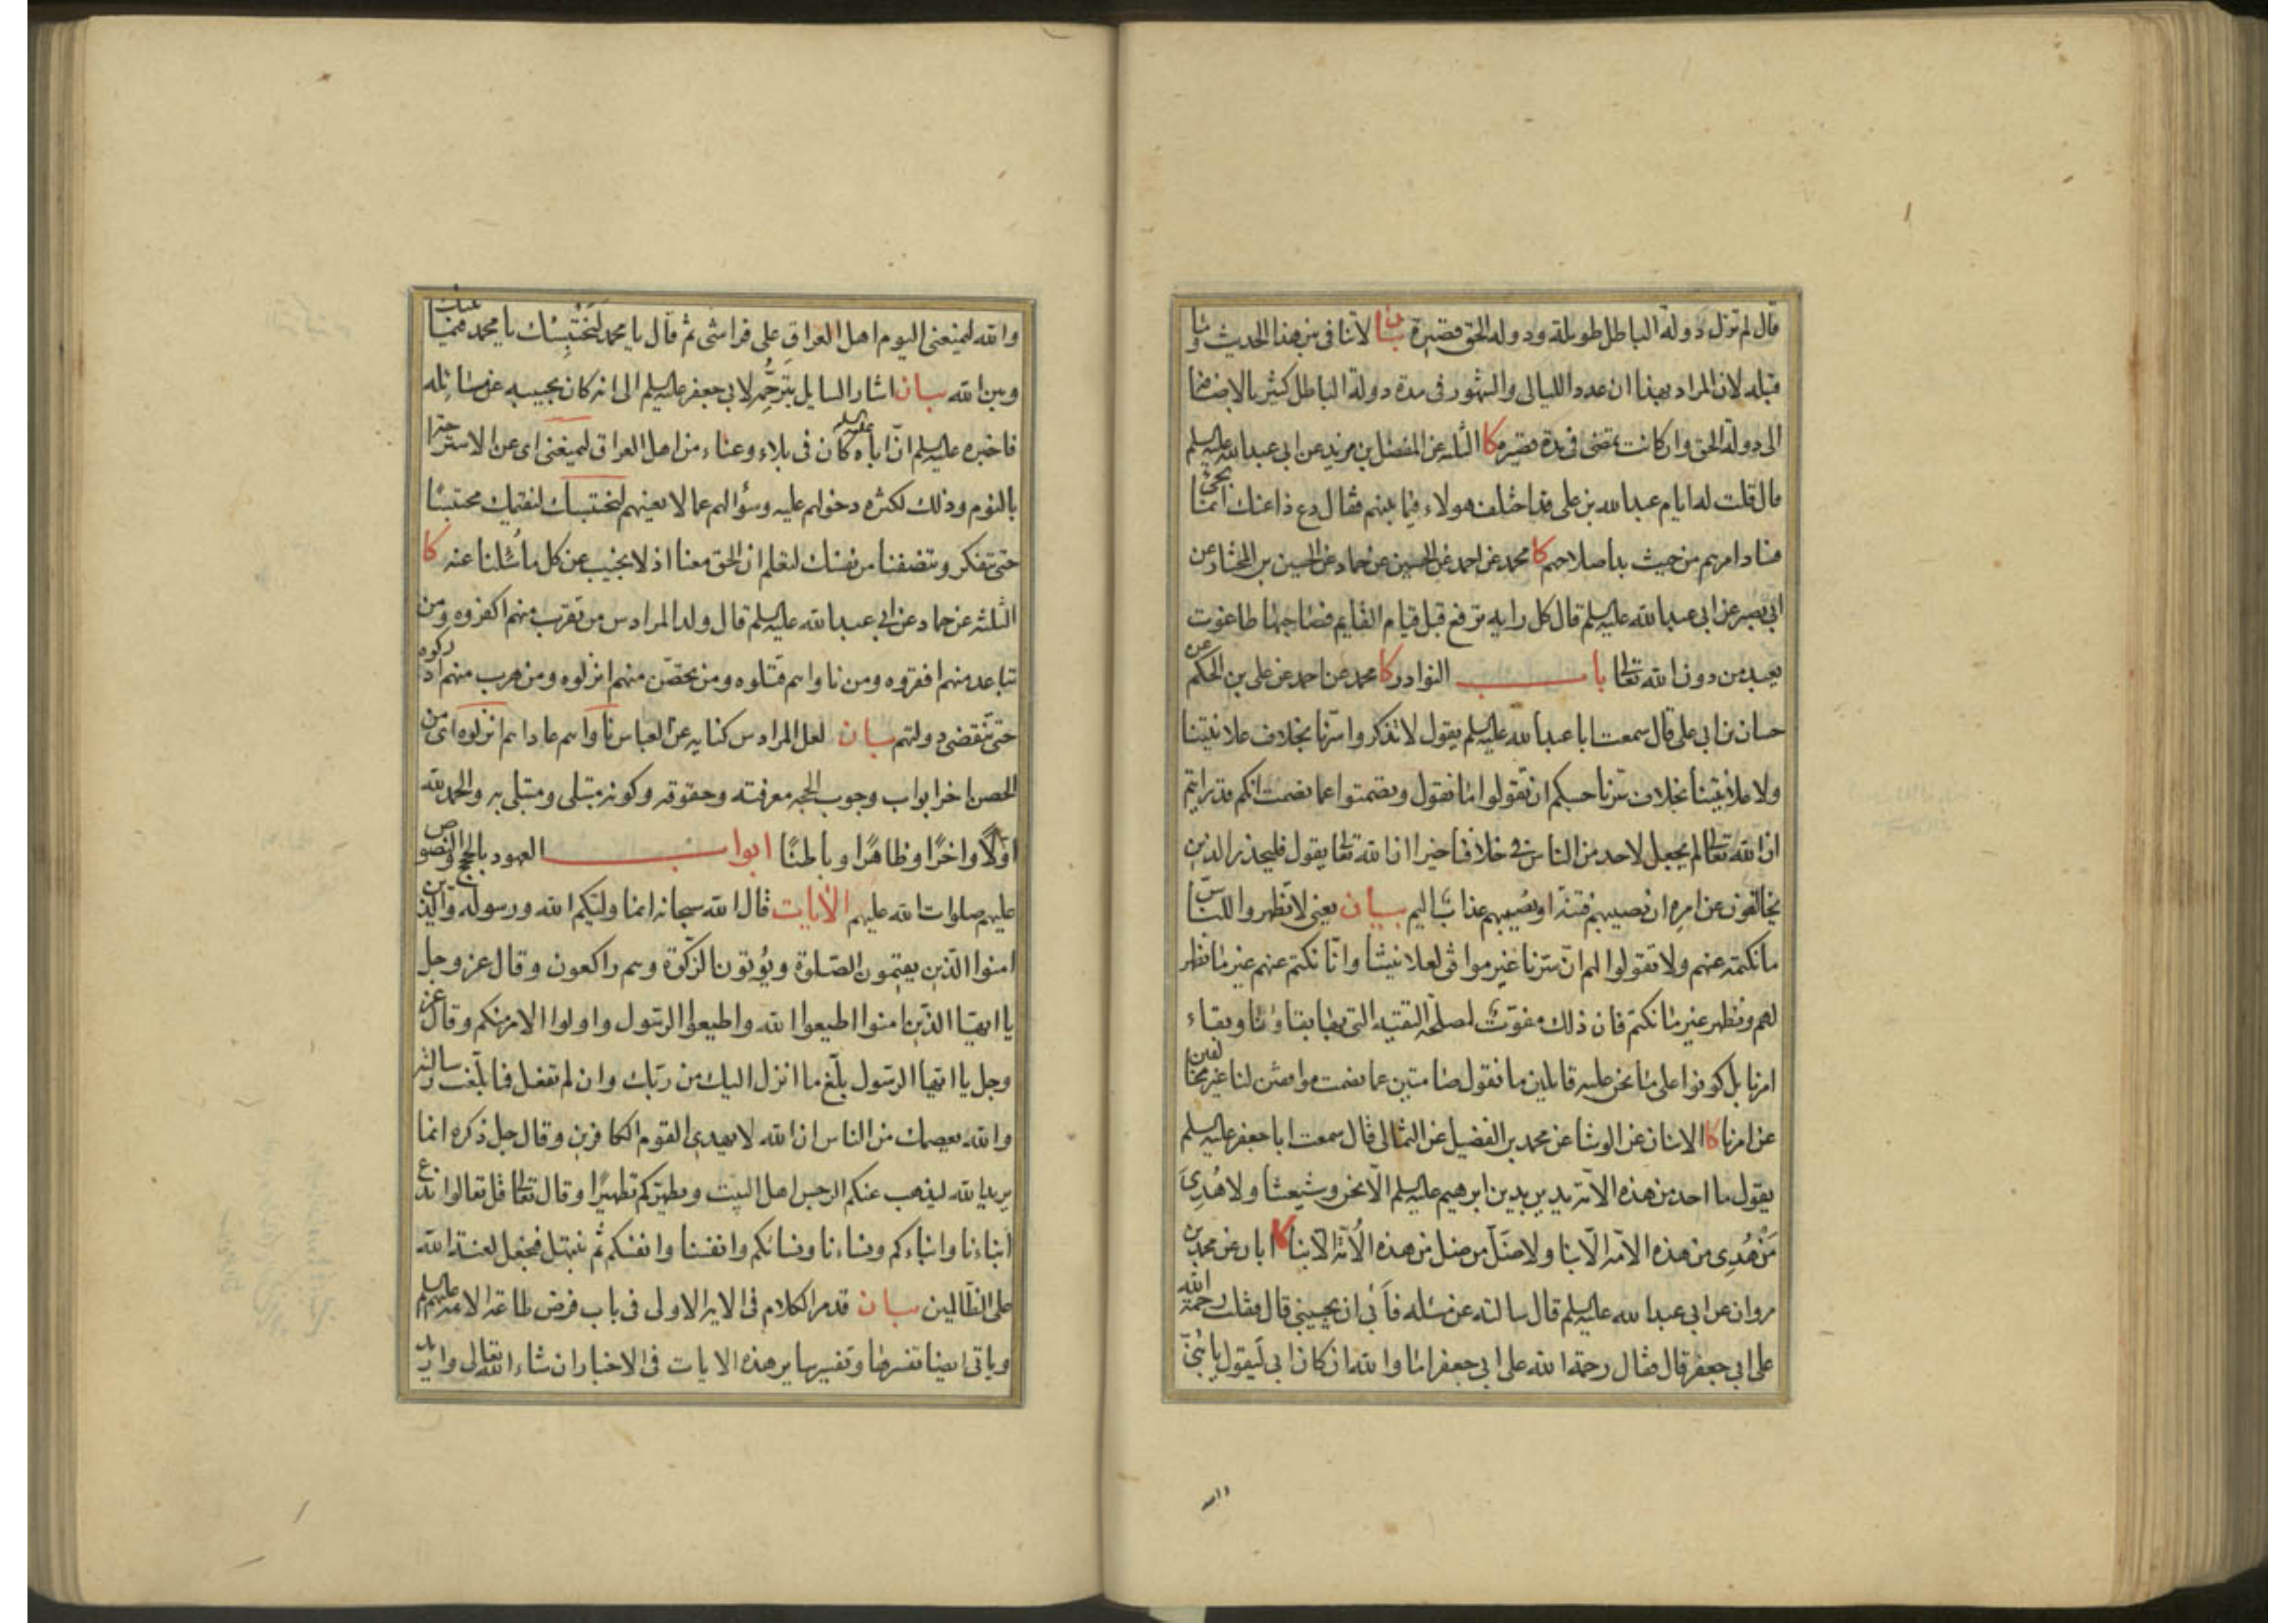 قال لم تزل دولة الباطل طويلة ودولة الحق قصيرة بيان لا تنافي بين هذا الحديث وما
قبله لان المراد بهذا ان عدد الليالى والشهور فى مدة دولة الباطل كثير بالاضافة
الى دولة الحق وان كانت تمضى فى مدة قصيرة كا الثلثه عن المفضل بن مزيد عن ابى عبد الله عليه السلم
قال قلت له ايام عبد الله بن على قد اختلف هولاء فيما بينهم فقال دع ذا عنك انما يجئ
فساد امرهم من حيث بدا صلاحهم كا محمد عن احمد عن الحسين عن حماد عن الحسين بن المختار عن
ابى بصير عن ابى عبد الله عليه السلم قال كل رايه ترفع قبل قيام القايم فصاحبها طاغوت
يعبد من دون الله تعالى باب النوادر كا محمد عن احمد عن على بن الحكم عن
حسان بن ابى على قال سمعت ابا عبد الله عليه السلم يقول لا تذكروا سرنا بخلاف علانيتنا
ولا علانيتنا بخلاف سرنا حسبكم ان تقولوا ما نقول وتصمتوا عما نصمت انكم قد رايتم
ان الله تعالى لم يجعل لاحد من الناس فى خلافنا خيرا ان الله تعالى يقول فليحذر الذين
يخالفون عن امره ان تصيبهم فتنة او يصيبهم عذاب اليم بيان يعنى لا تظهروا للناس
ما نكتمه عنهم ولا تقولوا لهم ان سرنا غير موافق لعلانيتنا وانا نكتم عنهم غير ما نظهر
لهم ونظهر غير ما نكتم فان ذلك مفوت لمصلحة التقيه التى بها بقاؤنا وبقاء
امرنا بل كونوا على ما نحن عليه قايلين ما نقول صامتين عما نصمت موافقين لنا غير مخالفين
عن امرنا كا الاثنان عن الوشا عن محمد بن الفضيل عن الثمالى قال سمعت ابا جعفر عليه السلم
يقول ما احد من هذه الامة يدين بدين ابرهيم عليه السلم الا نحن وشيعتنا ولا هُدِىَ
مَنْ هُدِى من هذه الامه الا بنا ولا ضَلّ من ضل من هذه الاُمّة الا بنا كا ابان عن محمد بن
مروان عن ابى عبد الله عليه السلم قال سالته عن مسئله فأبى ان يجيبنى قال فقلت رحمة الله
على ابى جعفر قال فقال رحمة الله على ابى جعفر اما والله ان كان ابى ليقول يا بُنىّ
والله
والله ليمنعنى اليوم اهل العراق على فراشى ثم قال يا محمد لتحتبس نفسك يا محمد فيما بينك
وبين الله بيان اشار السايل بترحّمه لابى جعفر عليه السلم الى انه كان يجيبه عن مسائله
فاخبره عليه السلم انّ اباه عليه السلم كان فى بلاء وعناء من اهل العراق ليمنعنى اى عن الاستراحة
بالنوم وذلك لكثره دخولهم عليه وسؤالهم عما لا يعنيهم
حتى تتفكر وتنصفنا من نفسك لتعلم ان الحق معنا اذ لا نجيب عن كل ما سُئلنا عنه كا
الثلثه عن حماد عن ابى عبد الله عليه السلم قال ولد المرداس من تقرب منهم اكفروه ومن
تباعد منهم افقروه ومن ناواهم قتلوه ومن تحصّن منهم انزلوه ومن هرب منهم ادركوه
حتى تنقضى دولتهم بيان لعل المرداس كنايه عن العباس ناواهم عاداهم انزلوه اى من
الحصن اخر ابواب وجوب الحجه ومعرفته وحقوقه وكونه مبتلى ومبتلى به والحمد لله
اولًا واخرًا وظاهرًا وباطنًا ابواب العهود بالحجج والنصوص
عليهم صلوات الله عليهم الآيات قال الله سبحانه انما وليّكم الله ورسوله والذين
امنوا الذين يقيمون الصّلوة ويؤتون الزكوة وهم راكعون وقال عز وجل
يا ايها الذين امنوا اطيعوا الله واطيعوا الرسول واولوا الامر منكم وقال عز
وجل يا ايها الرسول بلّغ ما انزل اليك من ربّك وان لم تفعل فما بلّغت رسالته
والله يعصمك من الناس ان الله لا يهدى القوم الكافرين وقال جل ذكره انما
يريد الله ليذهب عنكم الرجس اهل البيت ويطهركم تطهيرًا وقال تعالى قل تعالوا ندع
ابناءنا وابناءكم ونساءنا ونسائكم وانفسنا وانفسكم ثم نبتهل فنجعل لعنة الله
على الظالمين بيان قد مر الكلام فى الايه الاولى فى باب فرض طاعة الائمه عليهم السلم
وياتى ايضا تفسيرها وتفسير ساير هذه الايات فى الاخبار ان شاء الله تعالى